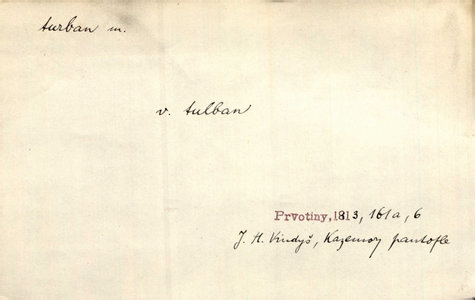 turban m.
v. tulban
Prvotiny, 1813, 161a, 6
J. H. Vindyš, Kazemovy pantofle